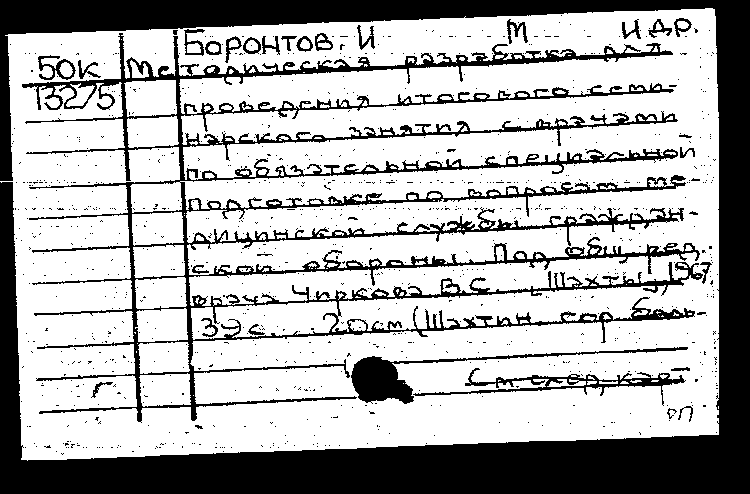 Боронтов. И М и др.
50К Методическая разработка для
13275 проведения итогового семи-
нарского занятия с врачами
по обязательной специальной
подготовке по вопросам ме-
дицинской службы граждан-
ской обороны. Под общ. ред.
врача Чиркова В.С. [Шахты], 1967.
39 с. 20 см (Шахтин. гор. боль-
См. след. карт.
рп